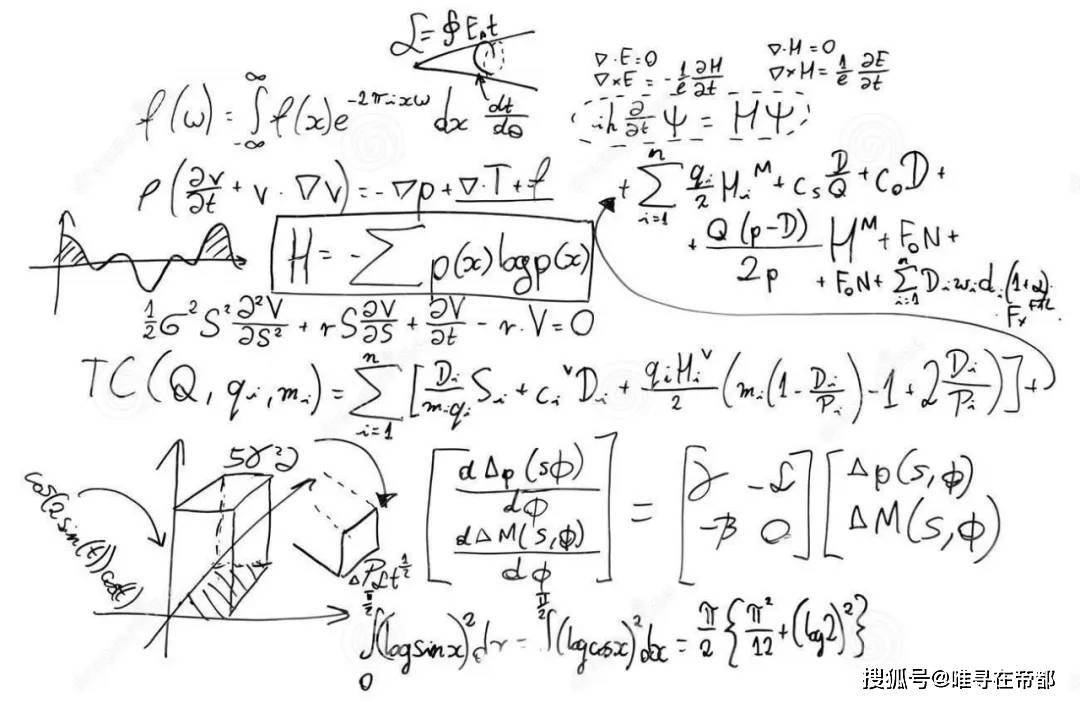 ℒ = ∮ E₀t
∇·E=0
∇×E = -1/e ∂H/∂t
∇·H=0
∇×H = 1/e ∂E/∂t
f(ω) = ∫_{-∞}^{∞} f(x)e^{-2πixω} dx
dt/dθ
iħ ∂/∂t Ψ = HΨ
ρ(∂v/∂t + v·∇v) = -∇p + ∇·T + f
+ Σ_{i=1}^{n} q_i/2 H_i^M + c_s D/Q + c_0 D +
+ Q(p-D)/2p H^M + F_0N +
+ F_0N + Σ_{i=1}^{n} D_i w_i d_i
H = -Σ p(x) log p(x)
1/2 σ²S² ∂²V/∂S² + rS ∂V/∂S + ∂V/∂t - r·V=0
TC(Q, q_i, m_i) = Σ_{i=1}^{n} [D_i/(m_i q_i) S_i + c_i^v D_i + q_i H_i^v/2 (m_i(1 - D_i/P_i) - 1 + 2 D_i/P_i)] +
[dΔp(sϕ)/dϕ
dΔM(s,ϕ)/dϕ] = [γ -ℒ
-β 0] [Δp(s,ϕ)
ΔM(s,ϕ)]
∫_0^{π/2} (log sin x)² dx = ∫^{π/2} (log cos x)² dx = π/2 {π²/12 + (log 2)²}
搜狐号@唯寻在帝都